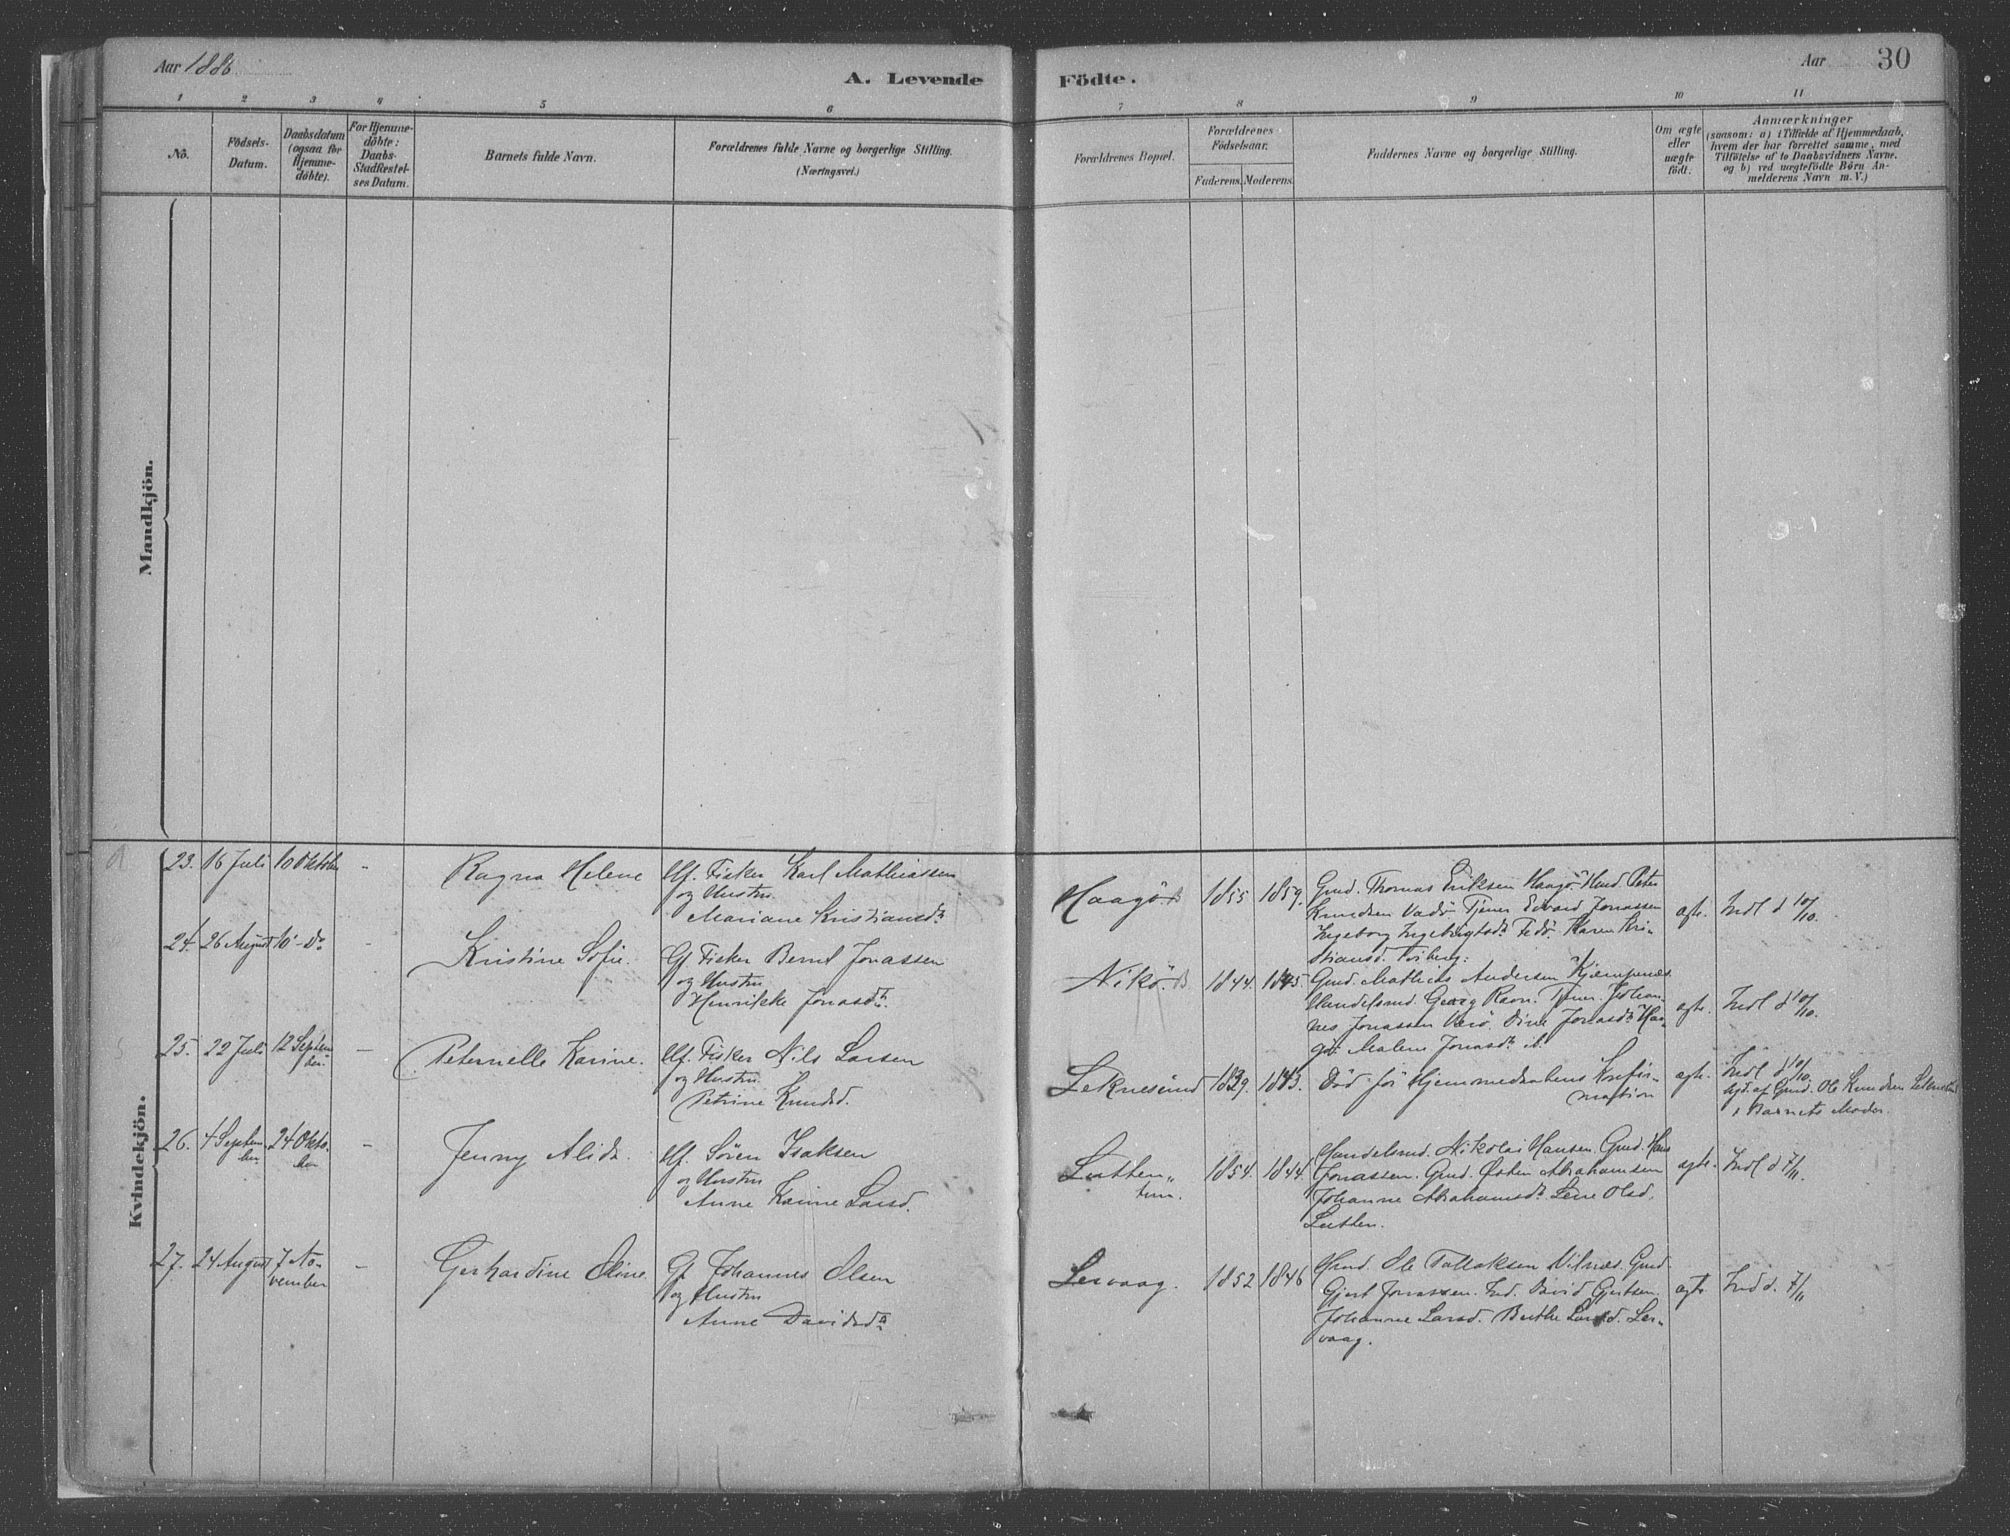 Aar 1886
A. Levende
Födte.
Aar
30
1 2 3 4 5 6 7 8 9 10 11
No.
Födsels-
Datum.
Daabsdatum
(ogsaa for
Hjemme-
döbte).
For Hjemme-
döbte:
Daabs-
Stadfæstel-
ses Datum.
Barnets fulde Navn.
Forældrenes fulde Navne og borgerlige Stilling.
(Næringsvei.)
Forældrenes Bopæl.
Forældrenes
Födselsaar.
Faderens. Moderens.
Faddernes Navne og borgerlige Stilling.
Om ægte
eller
uægte
födt.
Anmærkninger
(saasom: a) i Tilfælde af Hjemmedaab,
hvem der har forrettet samme, med
Tilföielse af to Daabsvidners Navne.
og b) ved uægtefödte Börn An-
melderens Navn m. V.)
Mandkjön.
Kvindekjön.
23. 16 Juli 10 Oktober - Ragna Helene
Fisker Karl Mathiassen
og Hustru
Mariane Kristiansdt
Haagö 1855 1859.
Gmd. Thomas Eriksen Haagö
Knudsen Tjener Edvard Jonassen
Ingeborg Ingebrigtsdt Karen Kri-
stiansd.
ægte. Indl d 10/10.
24. 26 August 10 - Do - Kristine Sofie.
Gf. Fisker Bernt Jonassen
og Hustru
Henrikke Jonasdt.
Nikö. 1844. 1845.
Gmd. Mathias Andersen Kjempenæs
Handelsmd. Georg Ravn. Tjener Johan-
nes Jonassen Dine Jonasdt Haa-
gö Malene Jonasdt
ægte. Indl d 10/10.
25. 22 Juli 12 Septem
ber. - Peternelle Karine.
Fisker Nils Larsen
og Hustru
Petrine Knudsd.
Leknesund 1839. 1843.
Död för Hjemmedaabens Konfir-
mation
ægte. Indl d 10/10.
Hjd. af Gmd. Ole Knudsen
i Barnets Moder.
26. 4 Septem
ber 24 Okto-
ber - Jenny Alida.
Sören Isaksen
og Hustru
Anne Karine Larsd.
1854. 1844.
Handelsmd. Nikolai Hansen. Gmd. Hans
Jonassen. Gmd. Östen Abrahamsen
Johanne Abrahamsdt. Lene Olsd.
ægte. Indl d 7/11.
27. 24 August 7 No-
vember - Gerhardine Oline
Gf. Johannes Olsen
og Hustru
Anne Davidsdt
Lervaag. 1852 1846
Gmd. Ole Tollaksen Gmd.
Gjert Jonassen. David Gjertsen.
Johanne Larsd. Berthe Larsd. Ler-
vaag.
ægte Ind d. 7/11